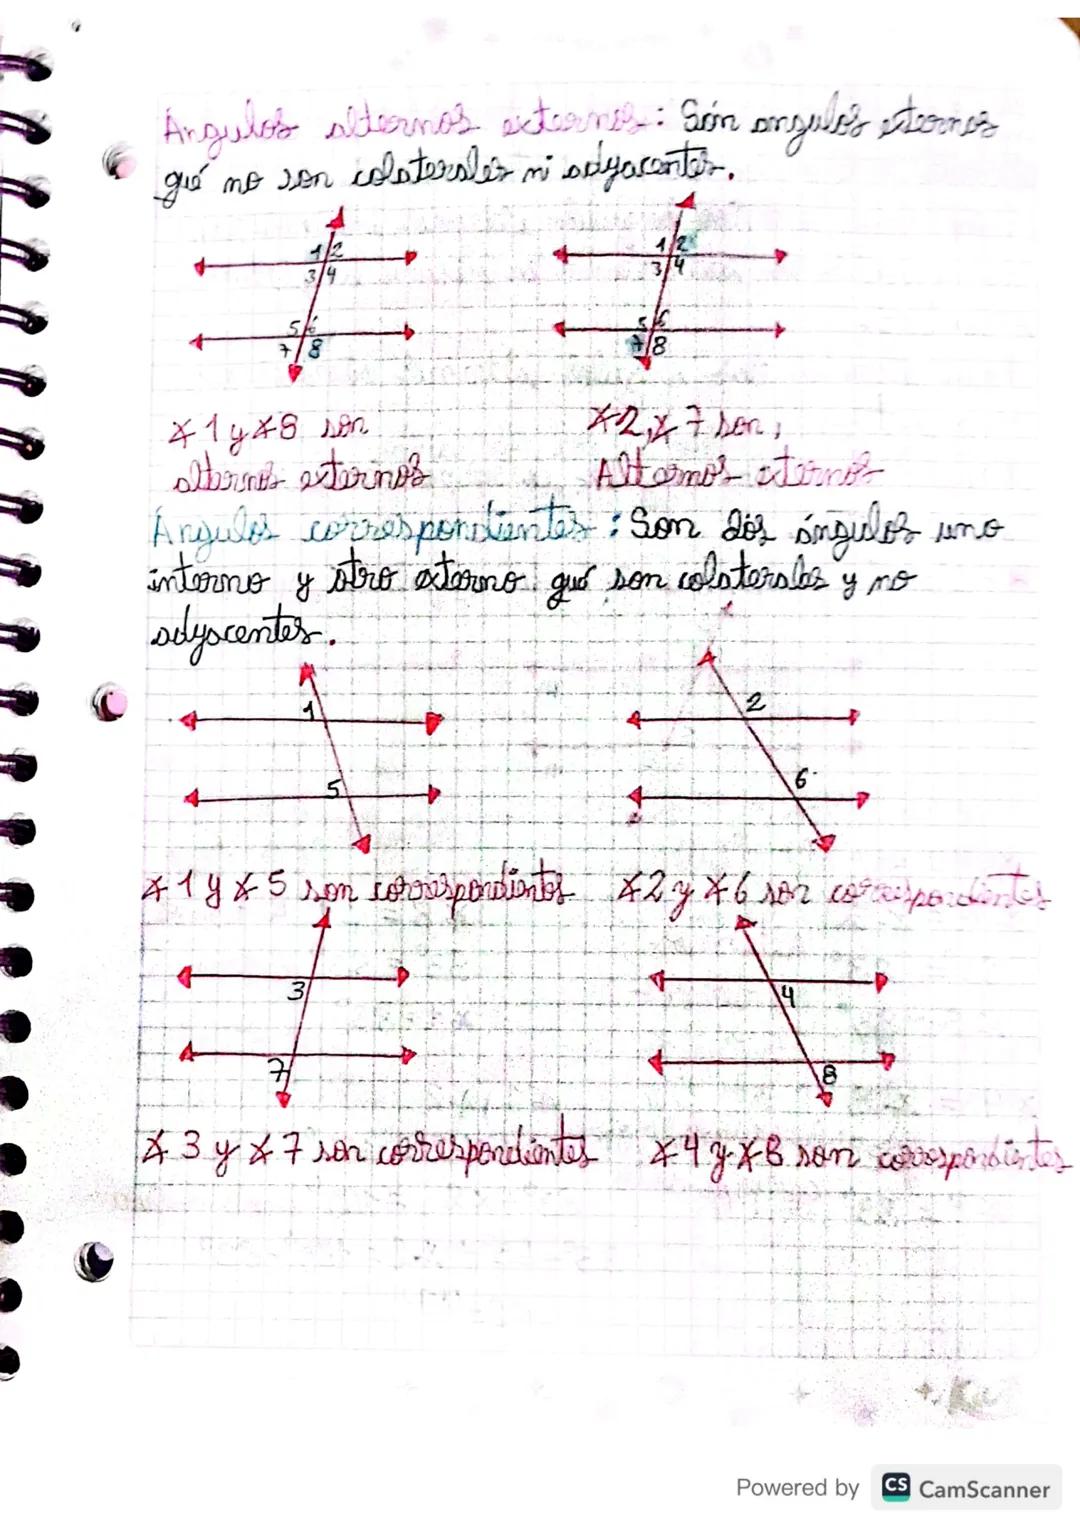 Angulos alternos externos: Són angulos externos
qué no son colaterales ni adyacentes.
1 2 1 2
3 4 3 4
5 6 5 6
7 8 7 8
∡1 y ∡8 son ∡2, ∡7 son,
alternos externos Alternos externos
Angulos correspondientes: Son dós ángulos uno
interno y otro externo qué son colaterales y no
adyacentes.
1 2
5 6
∡1 y ∡5 son correspondientes ∡2 y ∡6 son correspondientes
3 4
7 8
∡3 y ∡7 son correspondientes ∡4 y ∡8 son correspondientes
Powered by CS CamScanner